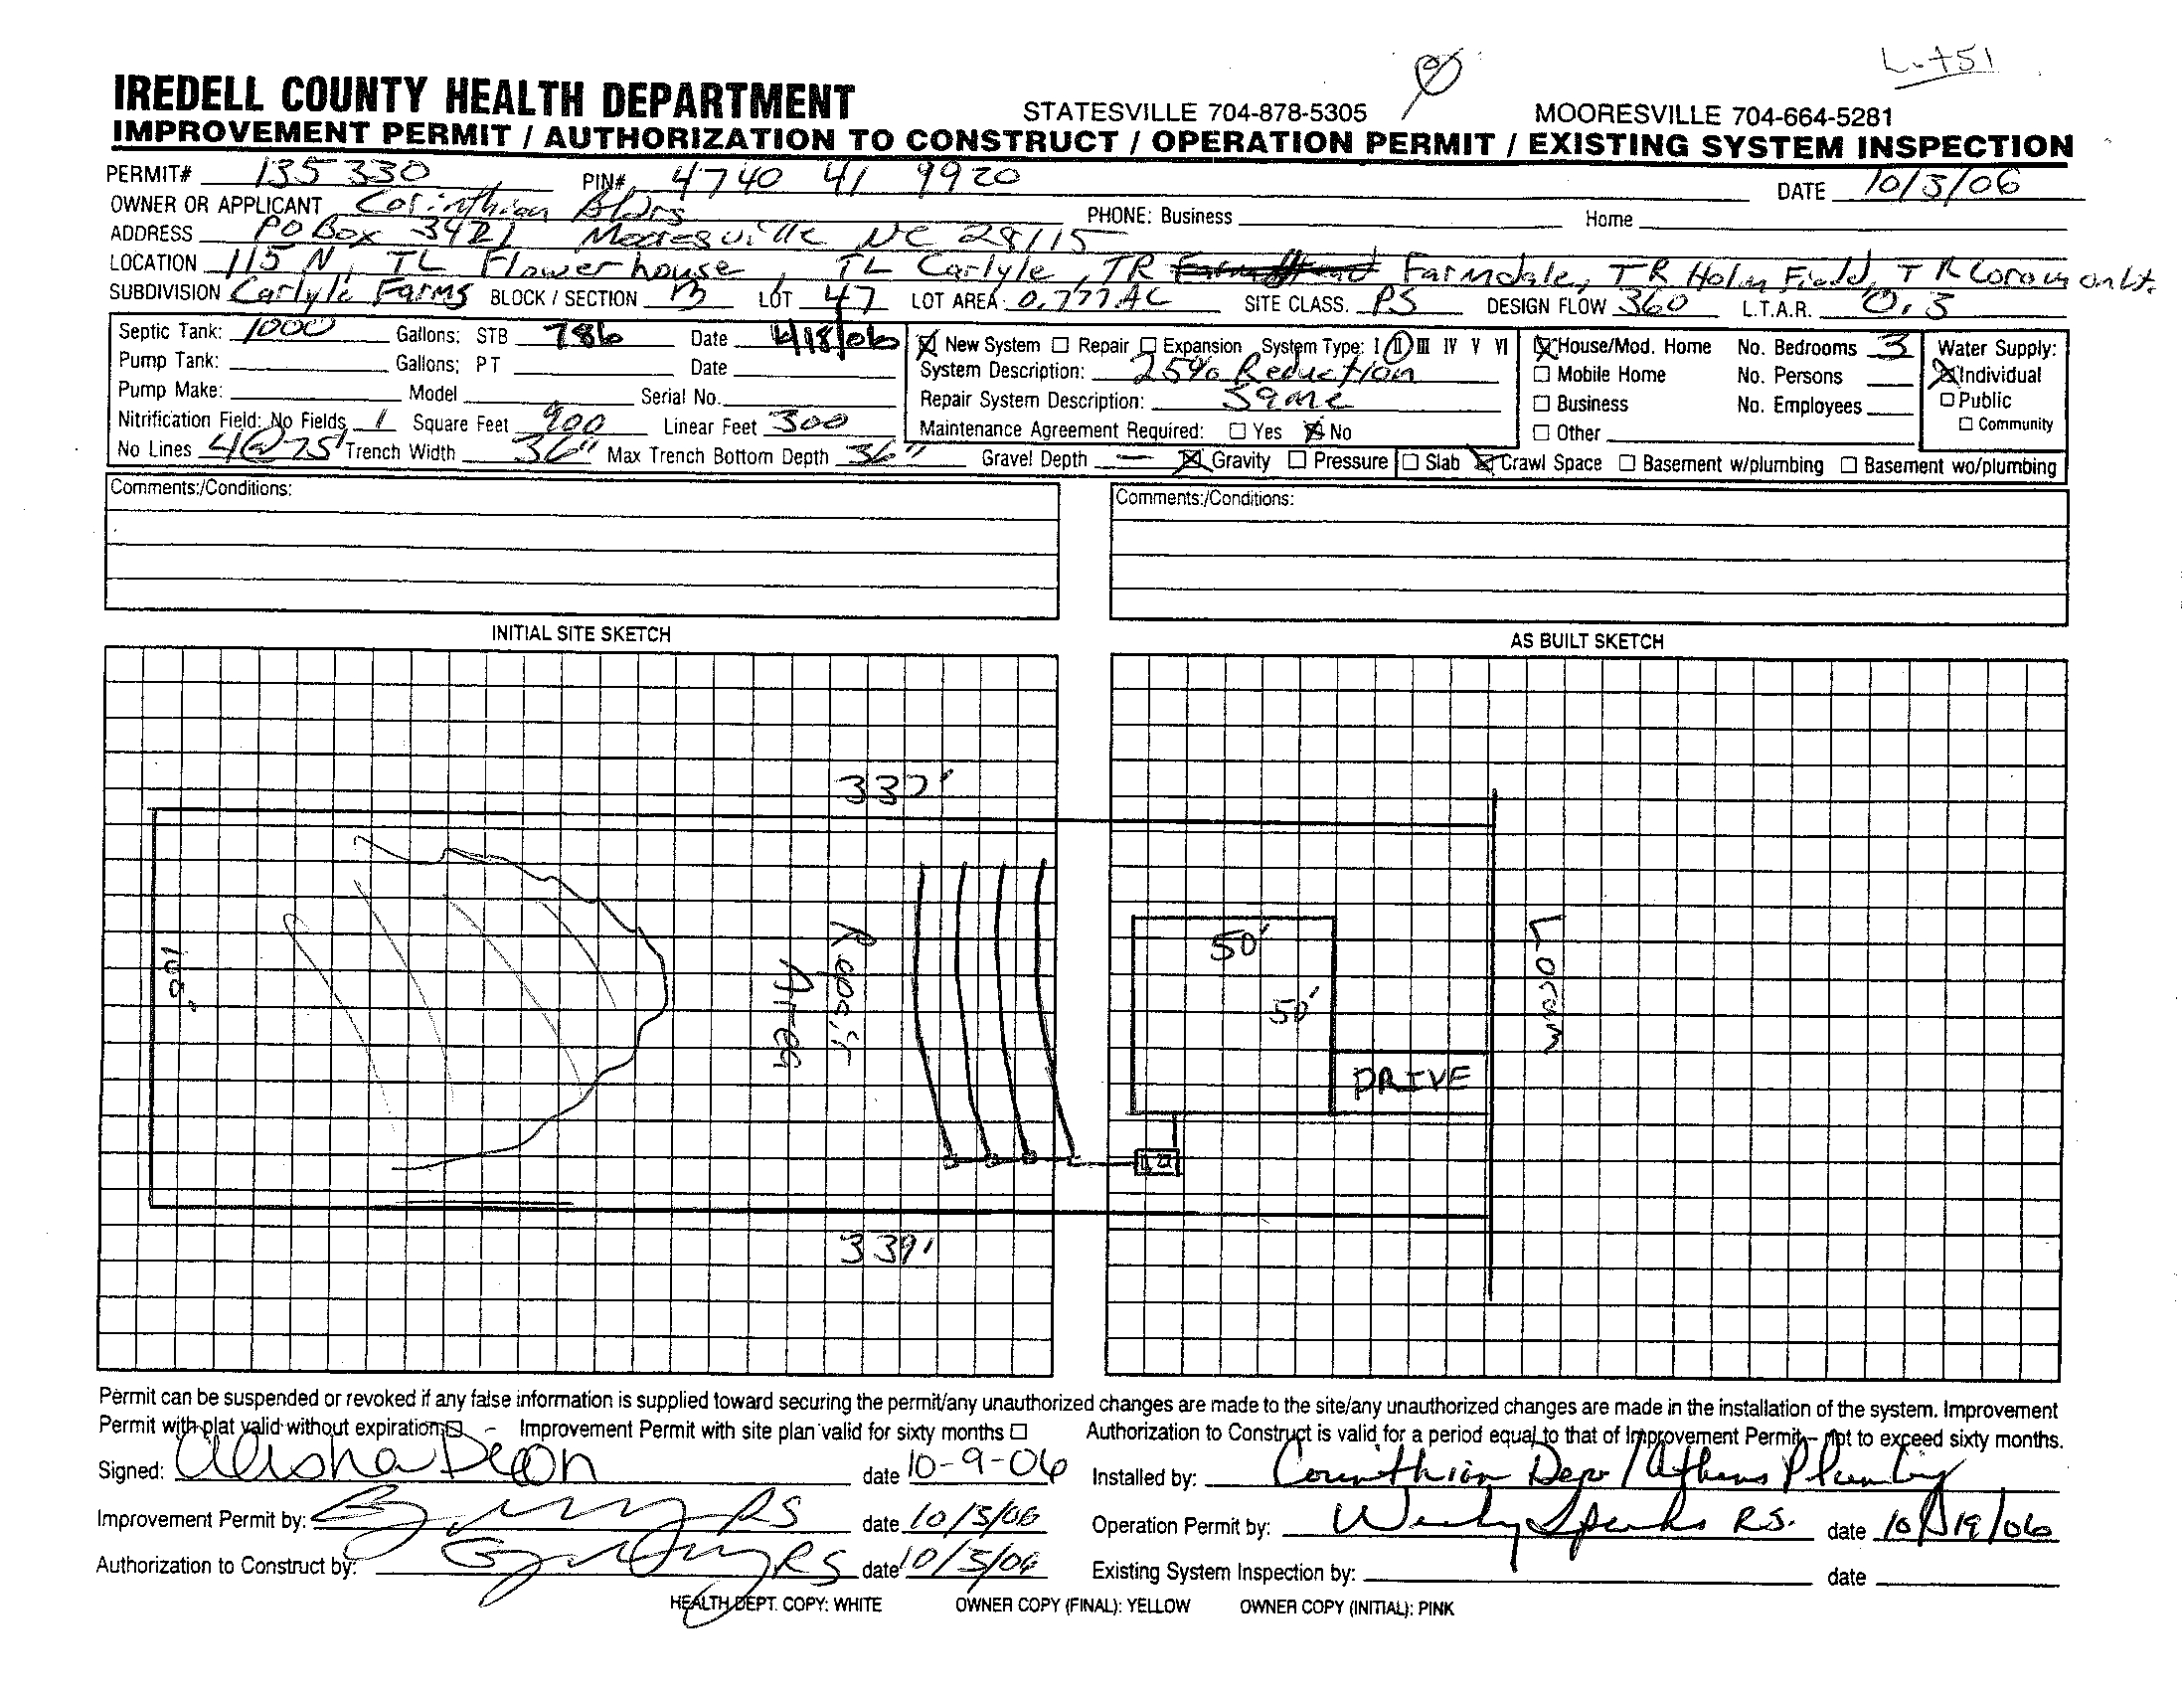 Lot 51
IREDELL COUNTY HEALTH DEPARTMENT STATESVILLE 704-878-5305 MOORESVILLE 704-664-5281
IMPROVEMENT PERMIT / AUTHORIZATION TO CONSTRUCT / OPERATION PERMIT / EXISTING SYSTEM INSPECTION
PERMIT# 135 330 PIN# 4740 41 9920 DATE 10/3/06
OWNER OR APPLICANT Corinthian Bldrs PHONE: Business Home
ADDRESS PO Box 3421 Mooresville NC 28115
LOCATION 115 N, TL Flower house, TL Carlyle, TR Farmdale, TR Holm Field, TR Loram on Lt.
SUBDIVISION Carlyle Farms BLOCK / SECTION B LOT 47 LOT AREA 0.777 AC SITE CLASS. PS DESIGN FLOW 360 L.T.A.R. 0.3
Septic Tank: 1000 Gallons; STB 786 Date 4/18/06 New System Repair Expansion System Type: I II III IV V VI House/Mod. Home No. Bedrooms 3 Water Supply:
Pump Tank: Gallons; PT Date System Description: 25% Reduction Mobile Home No. Persons Individual
Pump Make: Model Serial No. Repair System Description: Same Business No. Employees Public
Nitrification Field: No Fields 1 Square Feet 900 Linear Feet 300 Maintenance Agreement Required: Yes No Other Community
No Lines 4@75' Trench Width 36" Max Trench Bottom Depth 36" Gravel Depth — Gravity Pressure Slab Crawl Space Basement w/plumbing Basement wo/plumbing
Comments:/Conditions: Comments:/Conditions:
INITIAL SITE SKETCH AS BUILT SKETCH
337'
100'
Repair
Area
50'
50'
Loram
DRIVE
339'
Permit can be suspended or revoked if any false information is supplied toward securing the permit/any unauthorized changes are made to the site/any unauthorized changes are made in the installation of the system. Improvement
Permit with plat valid without expiration - Improvement Permit with site plan valid for sixty months Authorization to Construct is valid for a period equal to that of Improvement Permit - not to exceed sixty months.
Signed: date 10-9-06 Installed by: Corinthian Depo / Athens Plumbing
Improvement Permit by: RS date 10/3/06 Operation Permit by: Wendy Sparks R.S. date 10/19/06
Authorization to Construct by: RS date 10/3/06 Existing System Inspection by: date
HEALTH DEPT. COPY: WHITE OWNER COPY (FINAL): YELLOW OWNER COPY (INITIAL): PINK